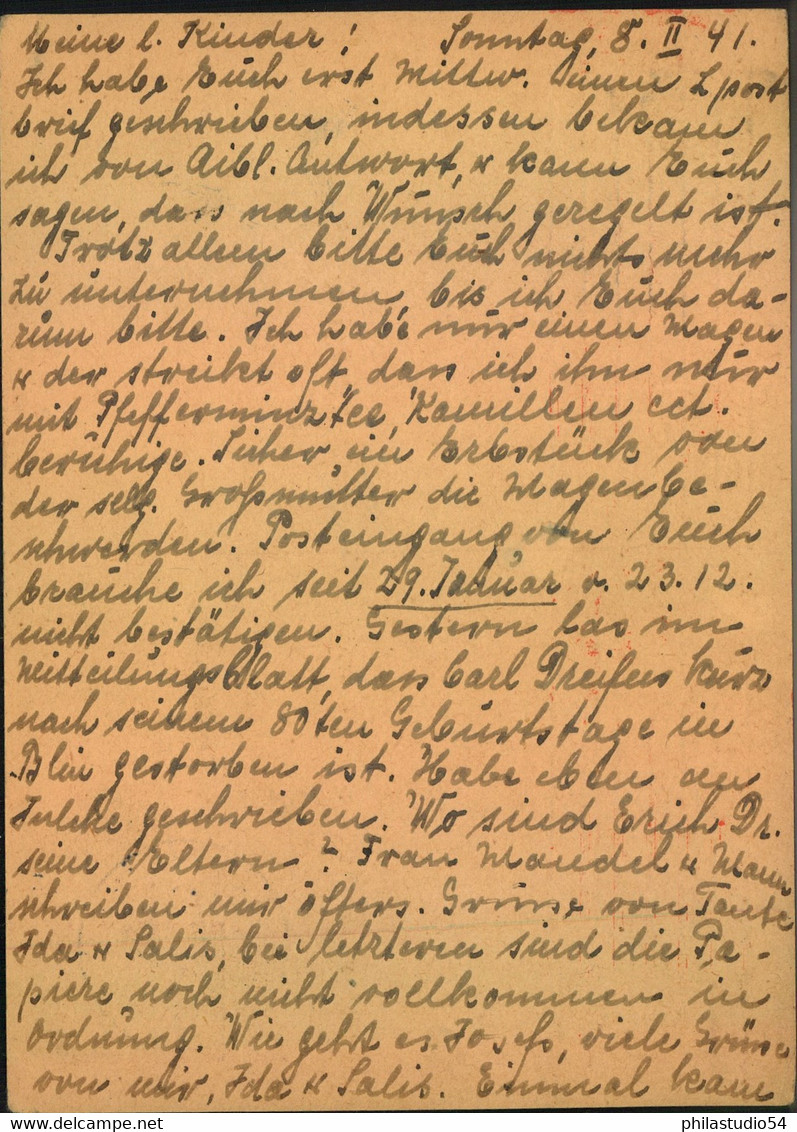 Meine l. Kinder! Sonntag, 8. II 41.
Ich habe Euch erst Mittw. einen Lpost
brief geschrieben, indessen bekam
ich von Aibl. Antwort, u kann Euch
sagen, dass nach Wunsch geregelt ist.
Trotz allem bitte Euch nichts mehr
zu unternehmen bis ich Euch da-
rum bitte. Ich habe nur einen Magen
u der streikt oft, dass ich ihn nur
mit Pfefferminz Tee, Kamillen ect.
beruhige. Sicher ein Erbstück von
der selg. Großmutter die Magenbe-
schwerden. Posteingang von Euch
brauche ich seit 29. Januar v. 23.12.
nicht bestätigen. Gestern las im
Mitteilungsblatt, dass Carl Dreifus kurz
nach seinem 80ten Geburtstage in
Blin gestorben ist. Habe eben an
geschrieben. Wo sind Erich Dr.
seine Eltern? Frau Mandel u Mann
schreiben mir öfters. Grüsse von Tante
Ida u Salis, bei letzteren sind die Pa-
piere noch nicht vollkommen in
Ordnung. Wie geht es Josefs, viele Grüsse
von mir, Ida u Salis. Einmal kam
philastudio54